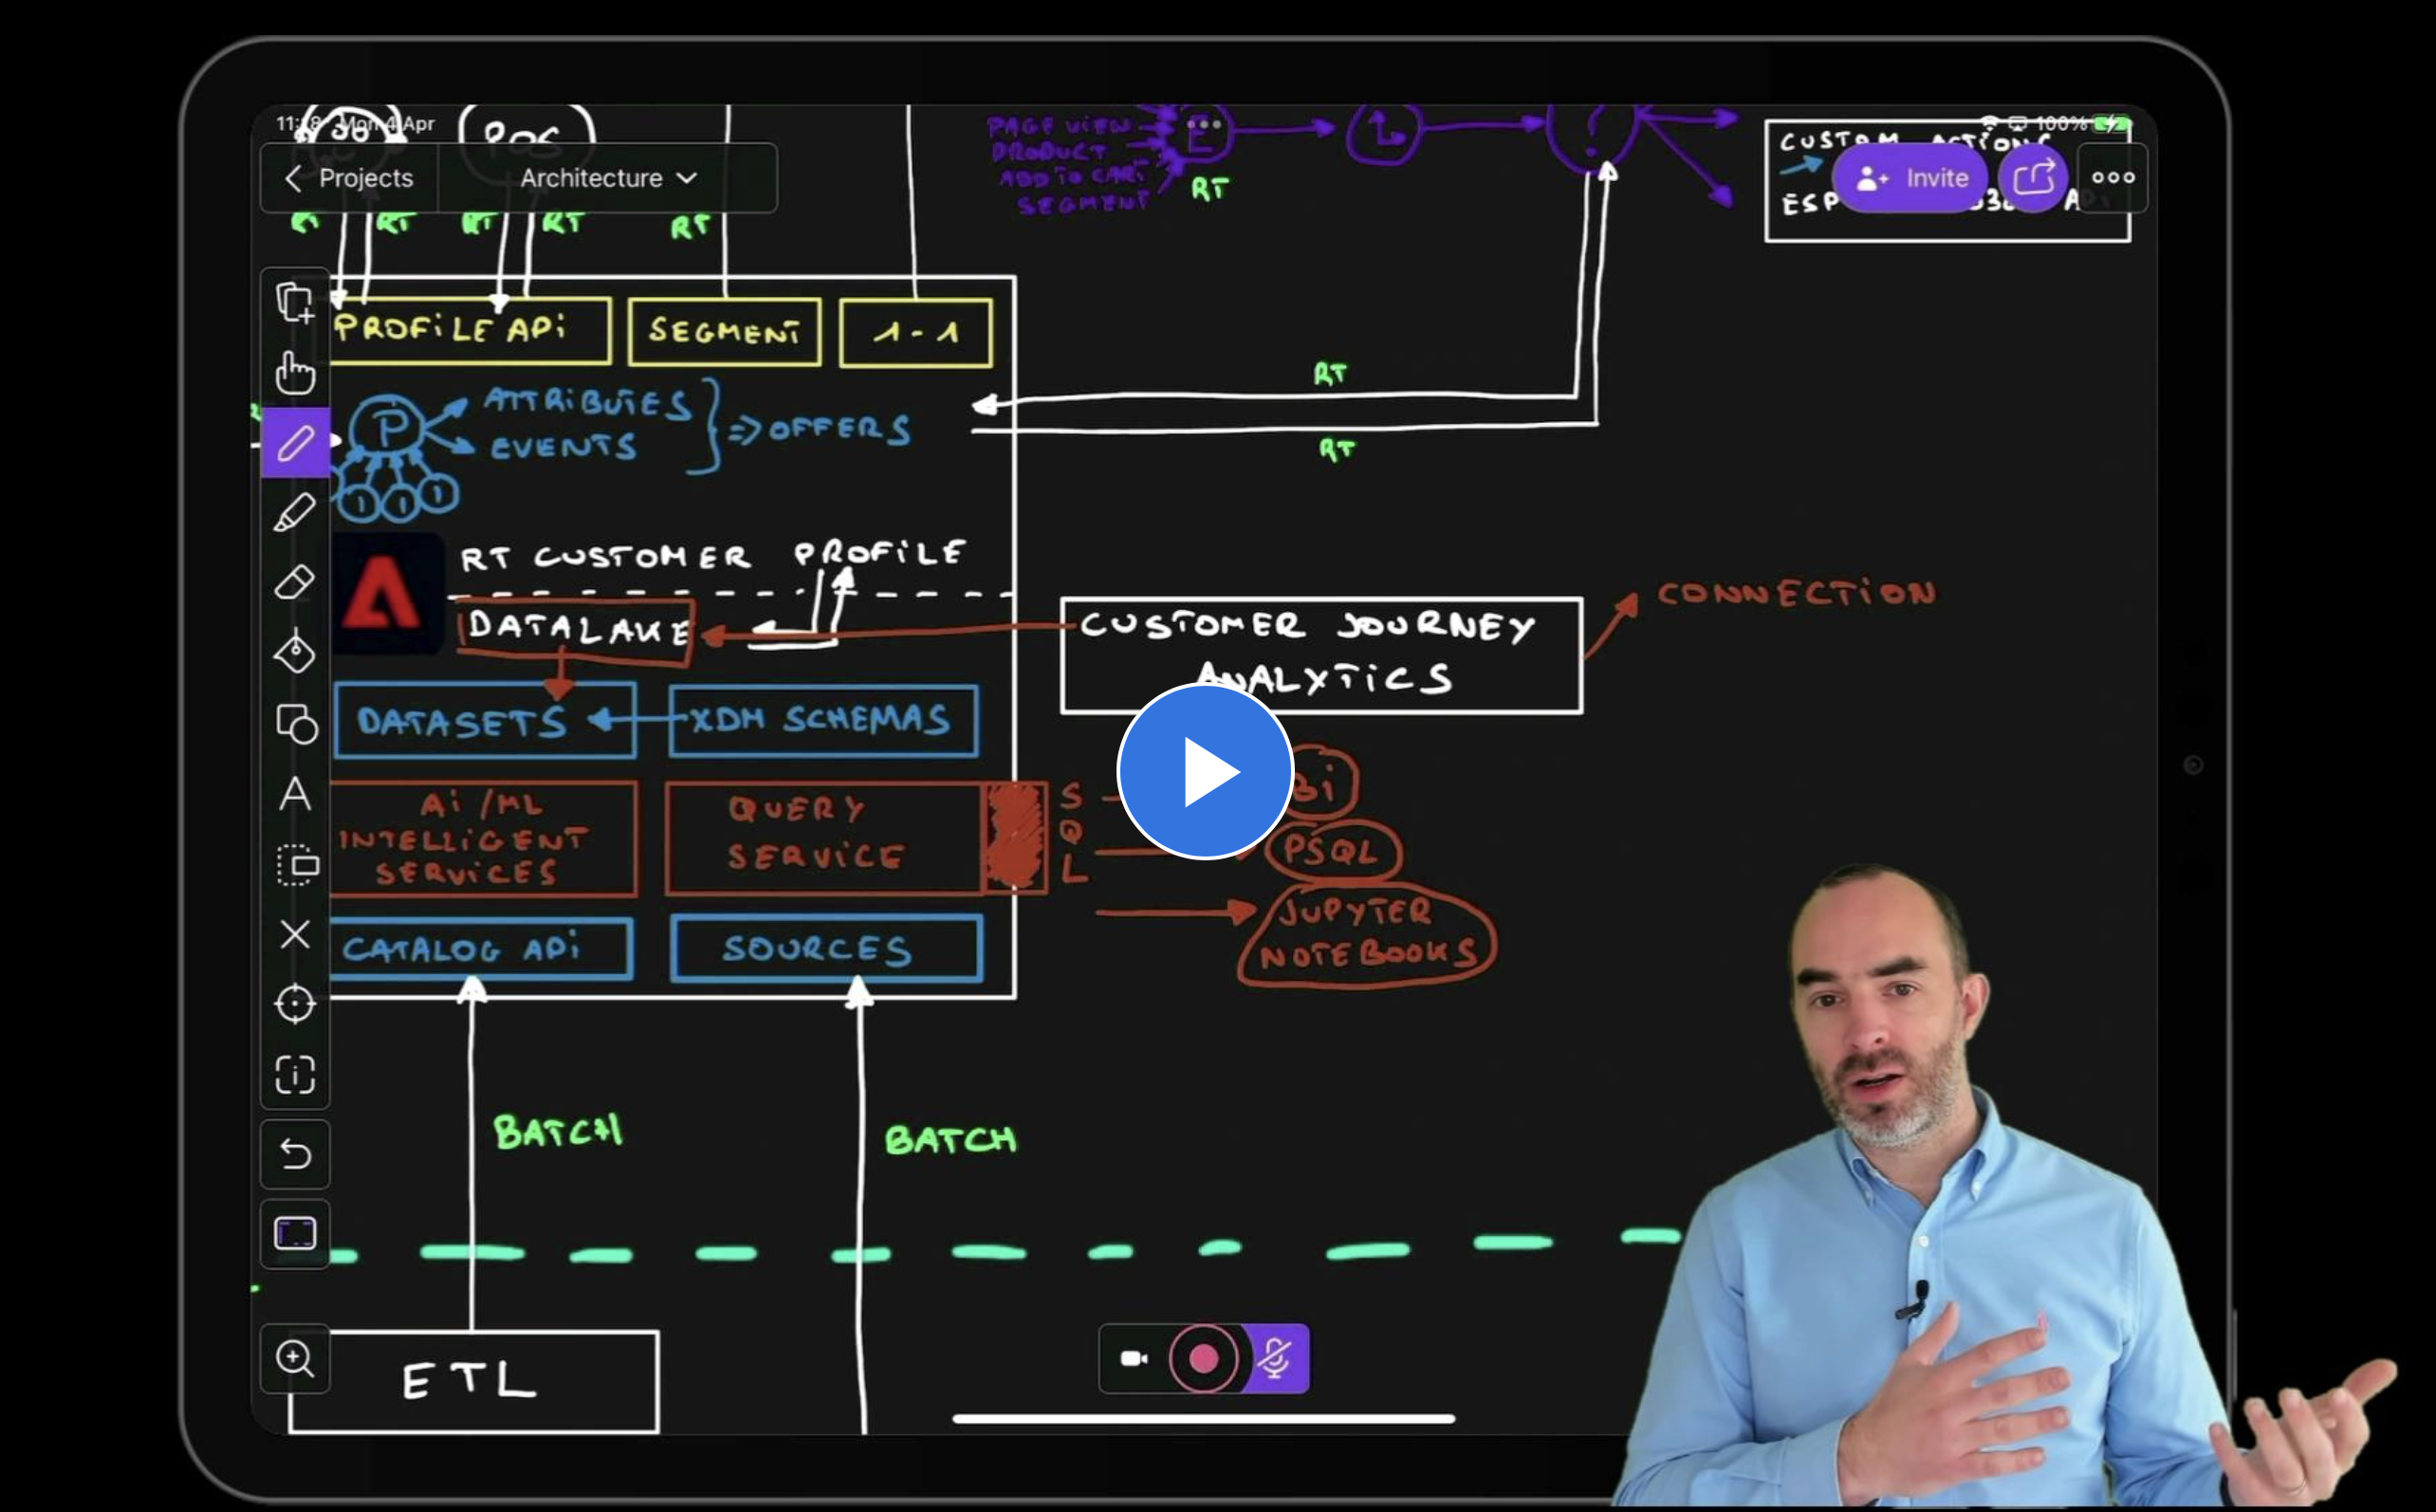 11:18 Mon 4 Apr
100%
POS
Projects
Architecture
PAGE VIEW
PRODUCT
ADD TO CART
SEGMENT
E
RT
CUSTOM ACTIONS
Invite
ESP
RT
RT
RT
RT
RT
PROFILE API
SEGMENT
1 - 1
RT
P
ATTRIBUTES
EVENTS
=> OFFERS
RT
1 1 1
RT CUSTOMER PROFILE
CONNECTION
DATALAKE
CUSTOMER JOURNEY
ANALYTICS
DATASETS
XDM SCHEMAS
AI/ML
INTELLIGENT
SERVICES
QUERY
SERVICE
SQL
BI
PSQL
JUPYTER
NOTEBOOKS
CATALOG API
SOURCES
BATCH
BATCH
ETL